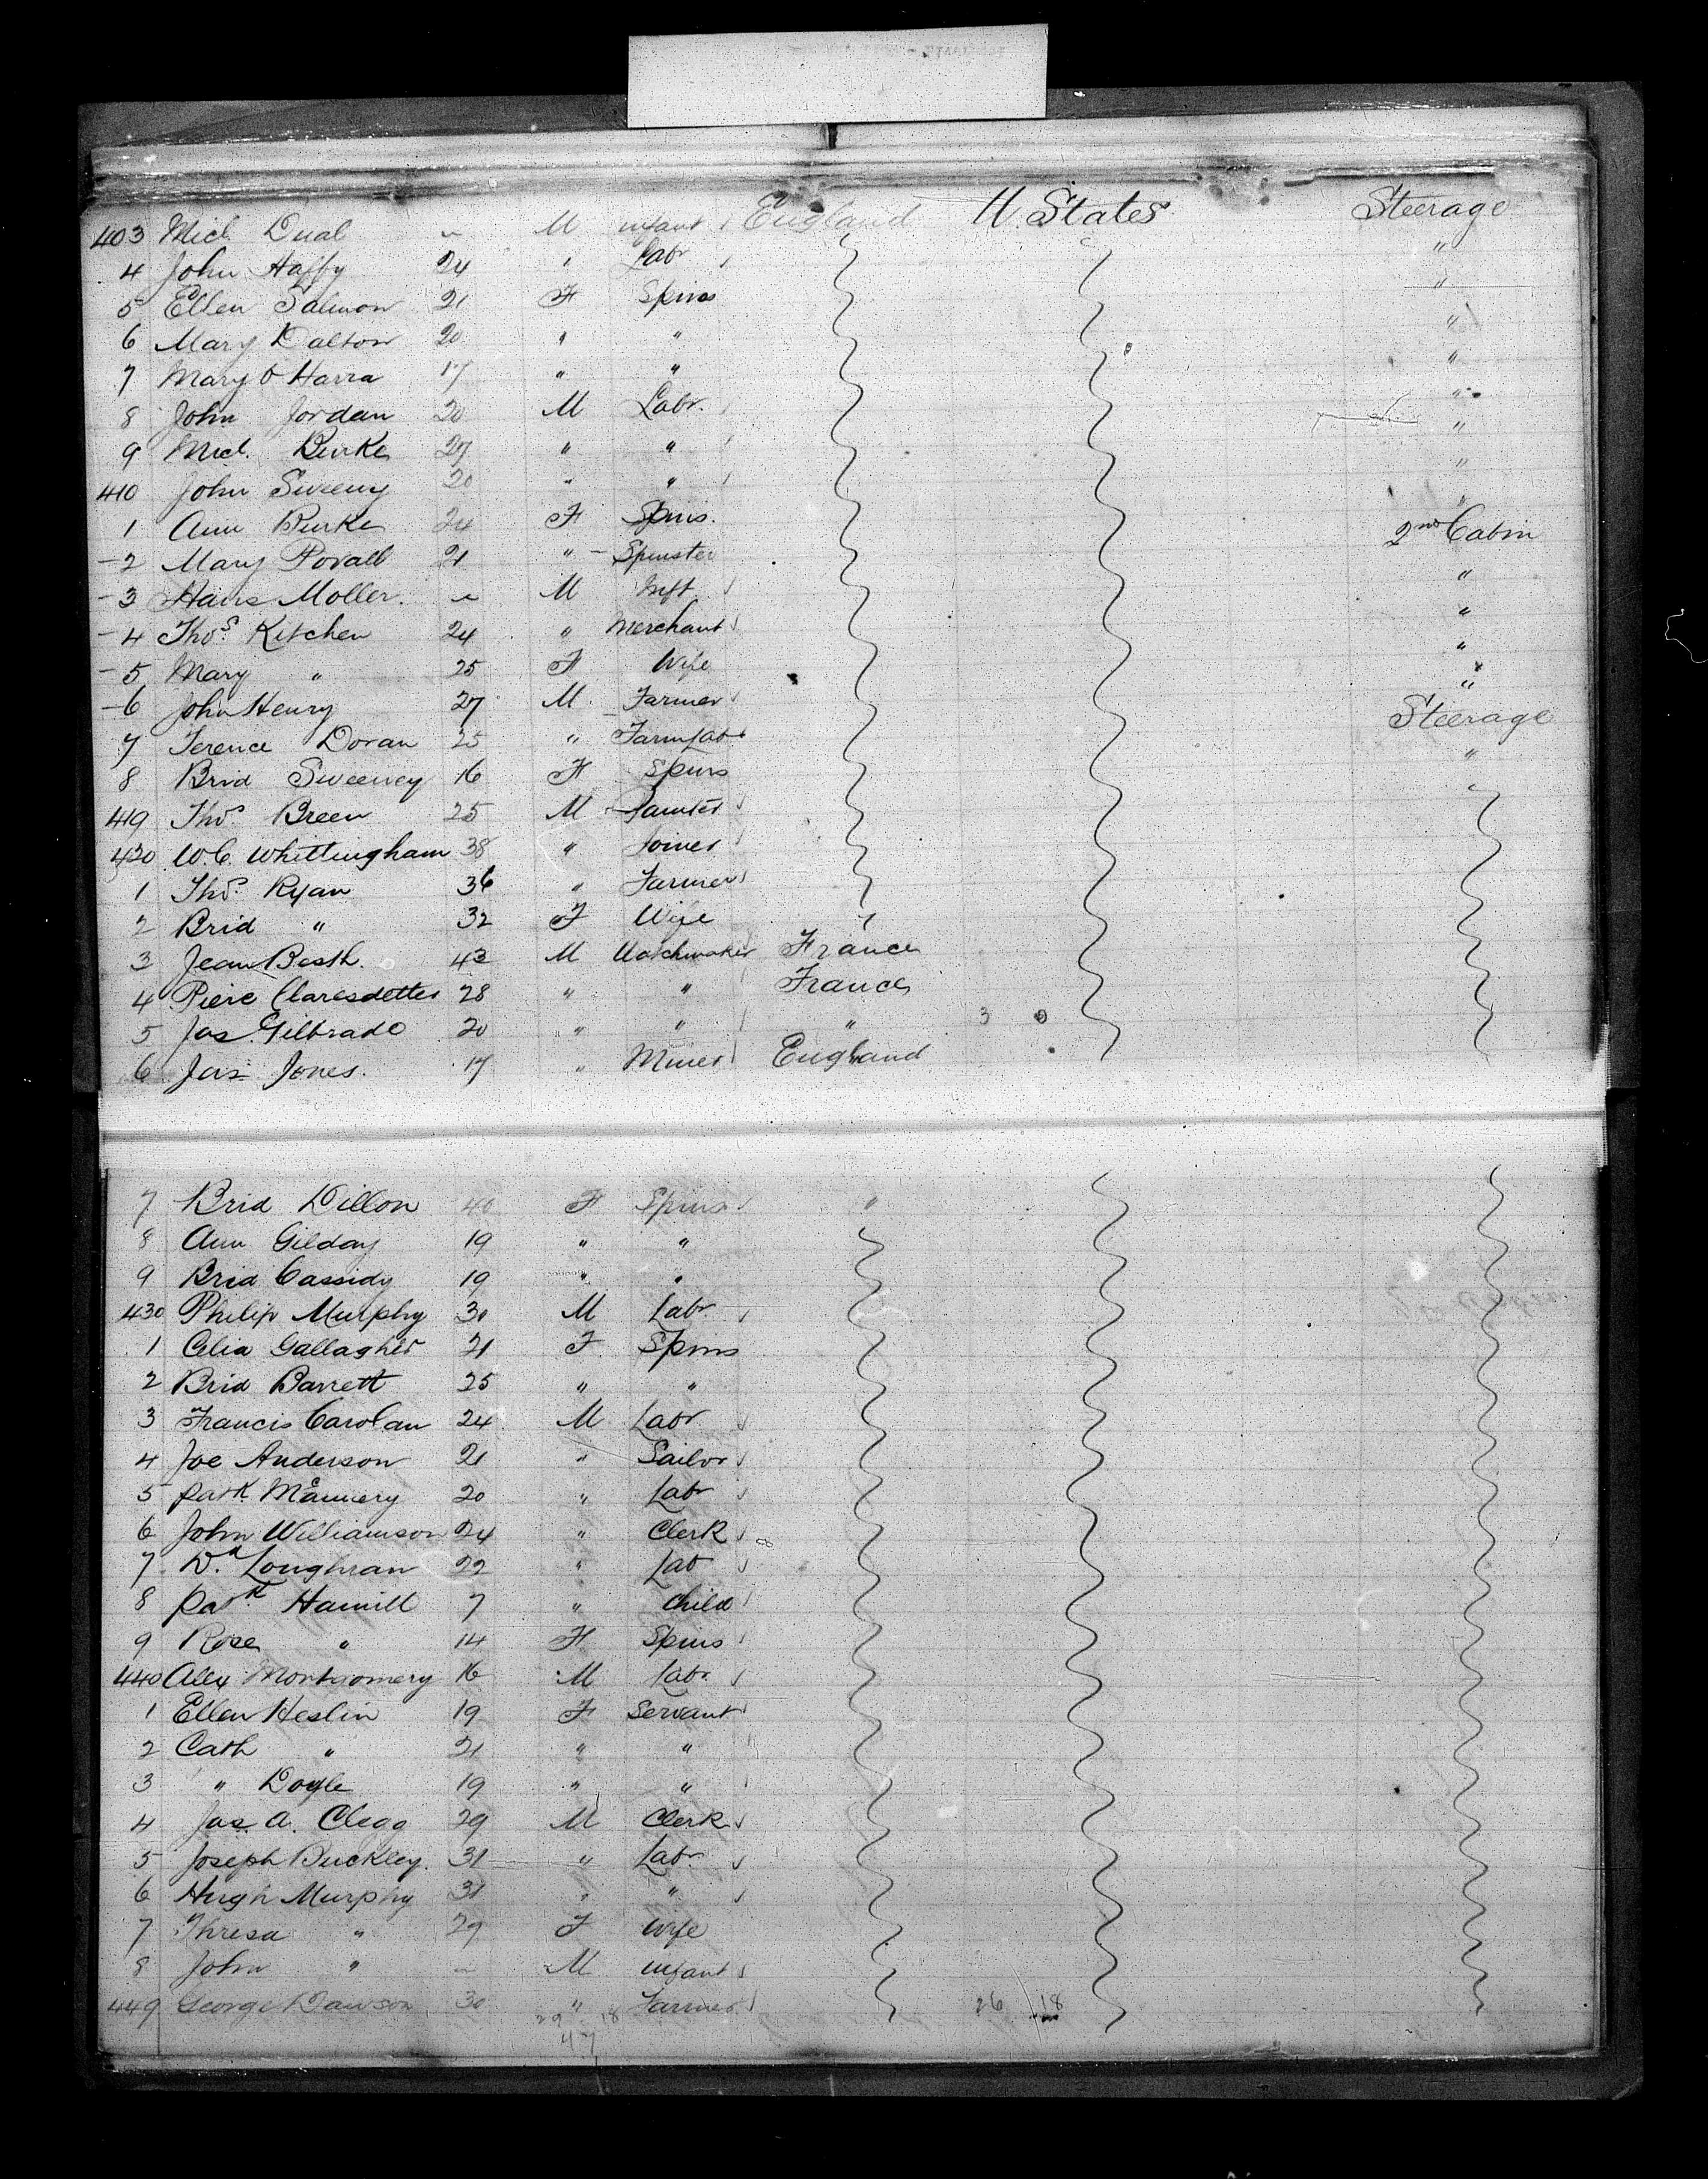 403 Micl. Dual ~ M infant England U. States Steerage
4 John Haffy 24 " Labr "
5 Ellen Salmon 21 F Spins "
6 Mary Dalton 20 " " "
7 Mary O Harra 17 " " "
8 John Jordan 20 M Labr. "
9 Micl. Burke 27 " " "
410 John Sweeny 20 " " "
1 Ann Burke 24 F Spins. "
-2 Mary Povall 21 " - Spinster 2nd Cabin
-3 Hans Moller. ~ M Inft "
-4 Thos. Kitchen 24 " Merchant "
-5 Mary " 25 F Wife "
-6 John Henry 27 M. Farmer "
7 Terence Doran 25 " Farm Labr Steerage
8 Brid Sweeney 16 F Spins "
419 Thos. Breen 25 M Painter "
420 W.C. Whittingham 38 " Joiner
1 Thos. Ryan 36 " Farmer
2 Brid " 32 F Wife "
3 Jean Basth. 43 M Watchmaker France
4 Piere Claresdettes 28 " " France
5 Jas. Gilbrado 20 " " " 3 0
6 Jas Jones. 17 " Miner England
7 Brid Dillon 40 F Spins "
8 Ann Gilday 19 " "
9 Brid Cassidy 19 " "
430 Philip Murphy 30 M Labr
1 Celia Gallagher 21 F Spins
2 Brid Barrett 25 " "
3 Francis Carolan 24 M Labr
4 Joe Anderson 21 " Sailor
5 Patk. McAnnery 20 " Labr
6 John Williamson 24 " Clerk
7 Dd. Loughran 22 " Lab
8 Patk Hamill 7 " Child
9 Rose " 14 F Spins
440 Alex Montgomery 16 M Labr.
1 Ellen Heslin 19 F Servant
2 Cath " 21 " "
3 " Doyle 19 " "
4 Jas. A. Clegg 29 M Clerk
5 Joseph Buckley. 31 " Labr
6 Hugh Murphy 31 " "
7 Thresa " 29 F Wife
8 John " ~ M infant
449 George Dawson 30 " Farmer 26 18
29 18
47